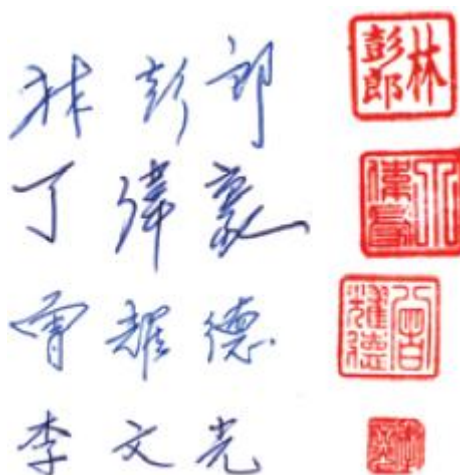 林彭郎 林彭郎
丁偉豪 丁偉豪
曾耀德 曾耀德
李文光 李文光